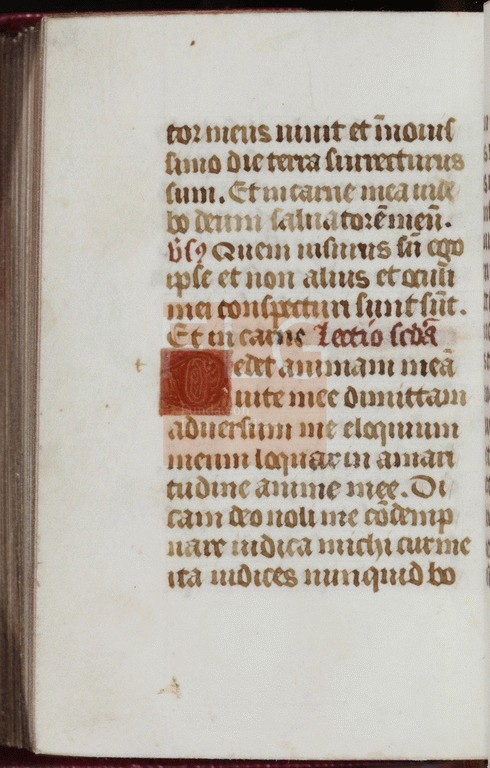 tor meus uiuit et ī nouis
simo die terra surrecturus
sum. Et in carne mea uide
bo deum saluatorē meū.
Vs Quem uisurus sū ego
ipse et non alius et oculi
mei conspecturi sunt sūt.
Et in carne Lectio scdā
t Tedet animam meā
uite mee dimittam
aduersum me eloquium
meum loquar in amari
tudine anime mee. Di
cam deo noli me cōdemp
nare iudica michi cur me
ita iudices nunquid bo